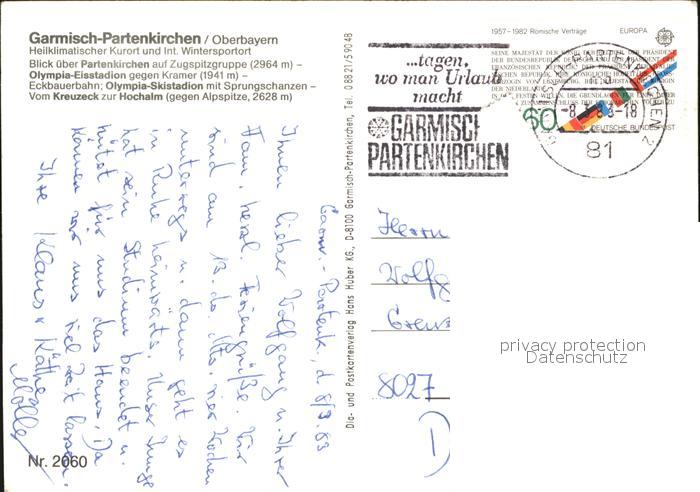 Garmisch-Partenkirchen / Oberbayern
Heilklimatischer Kurort und Int. Wintersportort
Blick über Partenkirchen auf Zugspitzgruppe (2964 m) –
Olympia-Eisstadion gegen Kramer (1941 m) –
Eckbauerbahn; Olympia-Skistadion mit Sprungschanzen –
Vom Kreuzeck zur Hochalm (gegen Alpspitze, 2628 m)
...tagen,
wo man Urlaub
macht
GARMISCH
PARTENKIRCHEN
1957–1982 Römische Verträge
EUROPA
60
DEUTSCHE BUNDESPOST
81
Garm.-Partenk., d. 8/3.83
Ihnen lieber Wolfgang u. Ihrer
Fam. herzl. Feriengrüße. Wir
sind am 13. ds. Mts. vier Wochen
unterwegs u. dann geht es
in Ruhe heimwärts. Unser Junge
hat sein Studium beendet u.
hütet für uns das Haus, Da
können wir uns viel Zeit lassen.
Ihre Klaus u. Käthe
Dia- und Postkartenverlag Hans Huber KG., D-8100 Garmisch-Partenkirchen, Tel. 0 88 21/5 90 48
Herrn
Wolfg
8027
privacy protection
Datenschutz
Nr. 2060